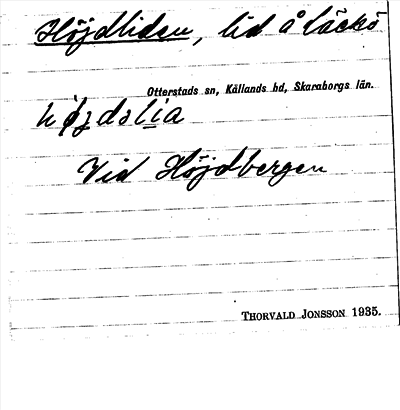 Höjdliden, lid å Läckö
Otterstads sn, Kållands hd, Skaraborgs län.
hø̀jdəlia
Vid Höjdbergen
THORVALD JONSSON 1935.